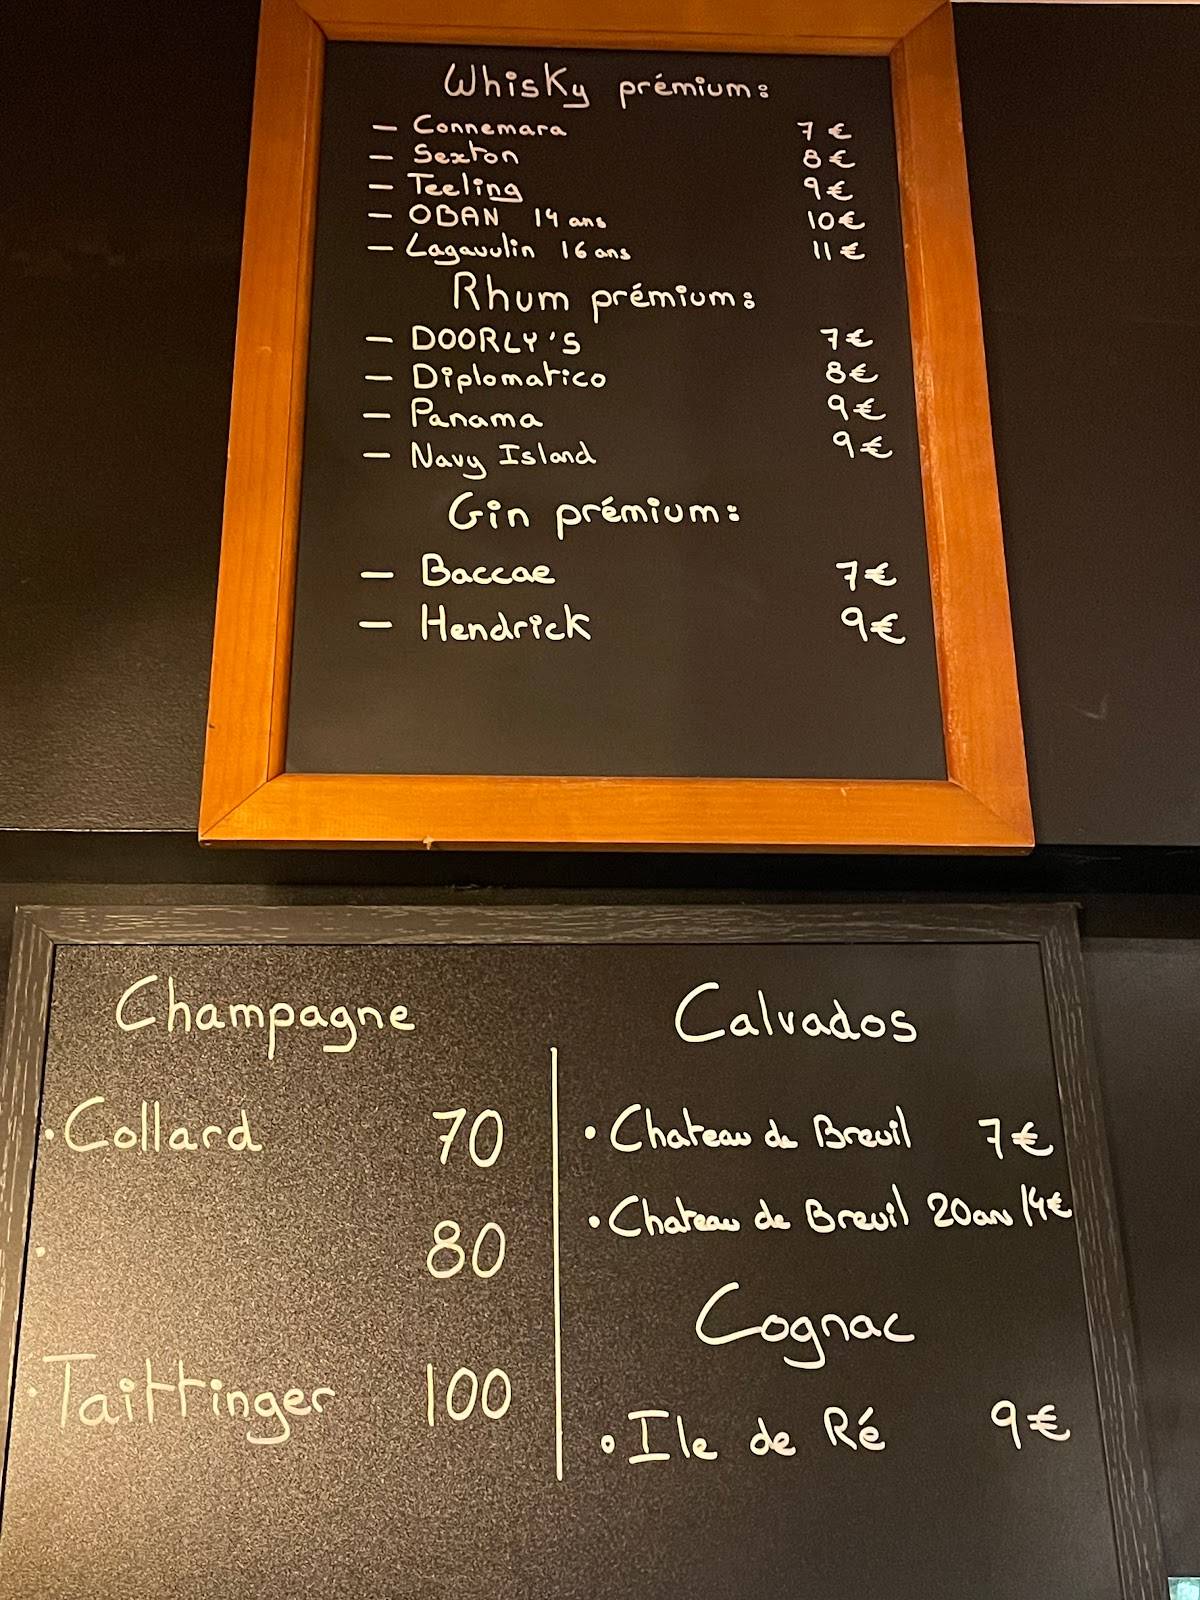 Whisky prémium:
— Connemara 7€
— Sexton 8€
— Teeling 9€
— OBAN 14 ans 10€
— Lagavulin 16 ans 11€
Rhum prémium:
— DOORLY'S 7€
— Diplomatico 8€
— Panama 9€
— Navy Island 9€
Gin prémium:
— Baccae 7€
— Hendrick 9€
Champagne
• Collard 70
• 80
• Taittinger 100
Calvados
• Chateau de Breuil 7€
• Chateau de Breuil 20 ans 14€
Cognac
• Ile de Ré 9€